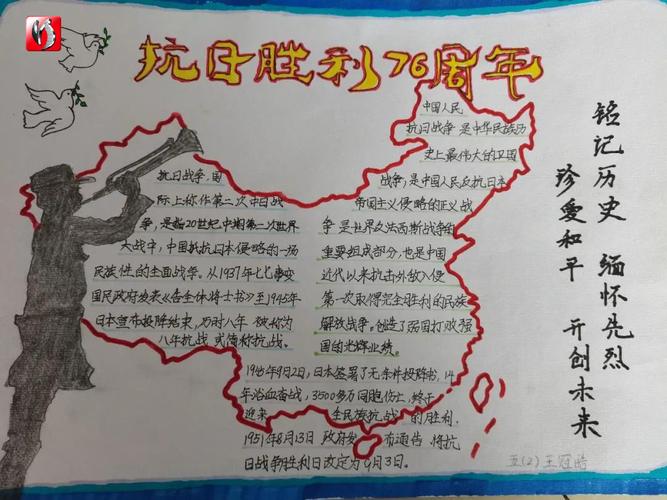 抗日胜利76周年
中国人民
抗日战争是中华民族历
史上最伟大的卫国
战争,是中国人民反抗日本
帝国主义侵略的正义战
争是世界反法西斯战争的
重要组成部分,也是中国
近代以来抗击外敌入侵
第一次取得完全胜利的民族
解放战争。创造了弱国打败强
国的光辉业绩
抗日战争,国
际上称作第二次中日战
争,是指20世纪中期第二次世界
大战中,中国抵抗日本侵略的一场
民族性的全面战争。从1937年七七事变
国民政府发表《告全体将士书》至1945年
日本宣布投降结束,历时八年 被称为
八年抗战 或简称抗战。
1945年9月2日,日本签署了无条件投降书,14
年浴血奋战,3500多万同胞伤亡,终于
迎来 全民族抗战 的胜利.
1951年8月13日 政府发 布通告 将抗
日战争胜利日改定为9月3日。
铭记历史 缅怀先烈
珍爱和平 开创未来
五(2)王冠皓